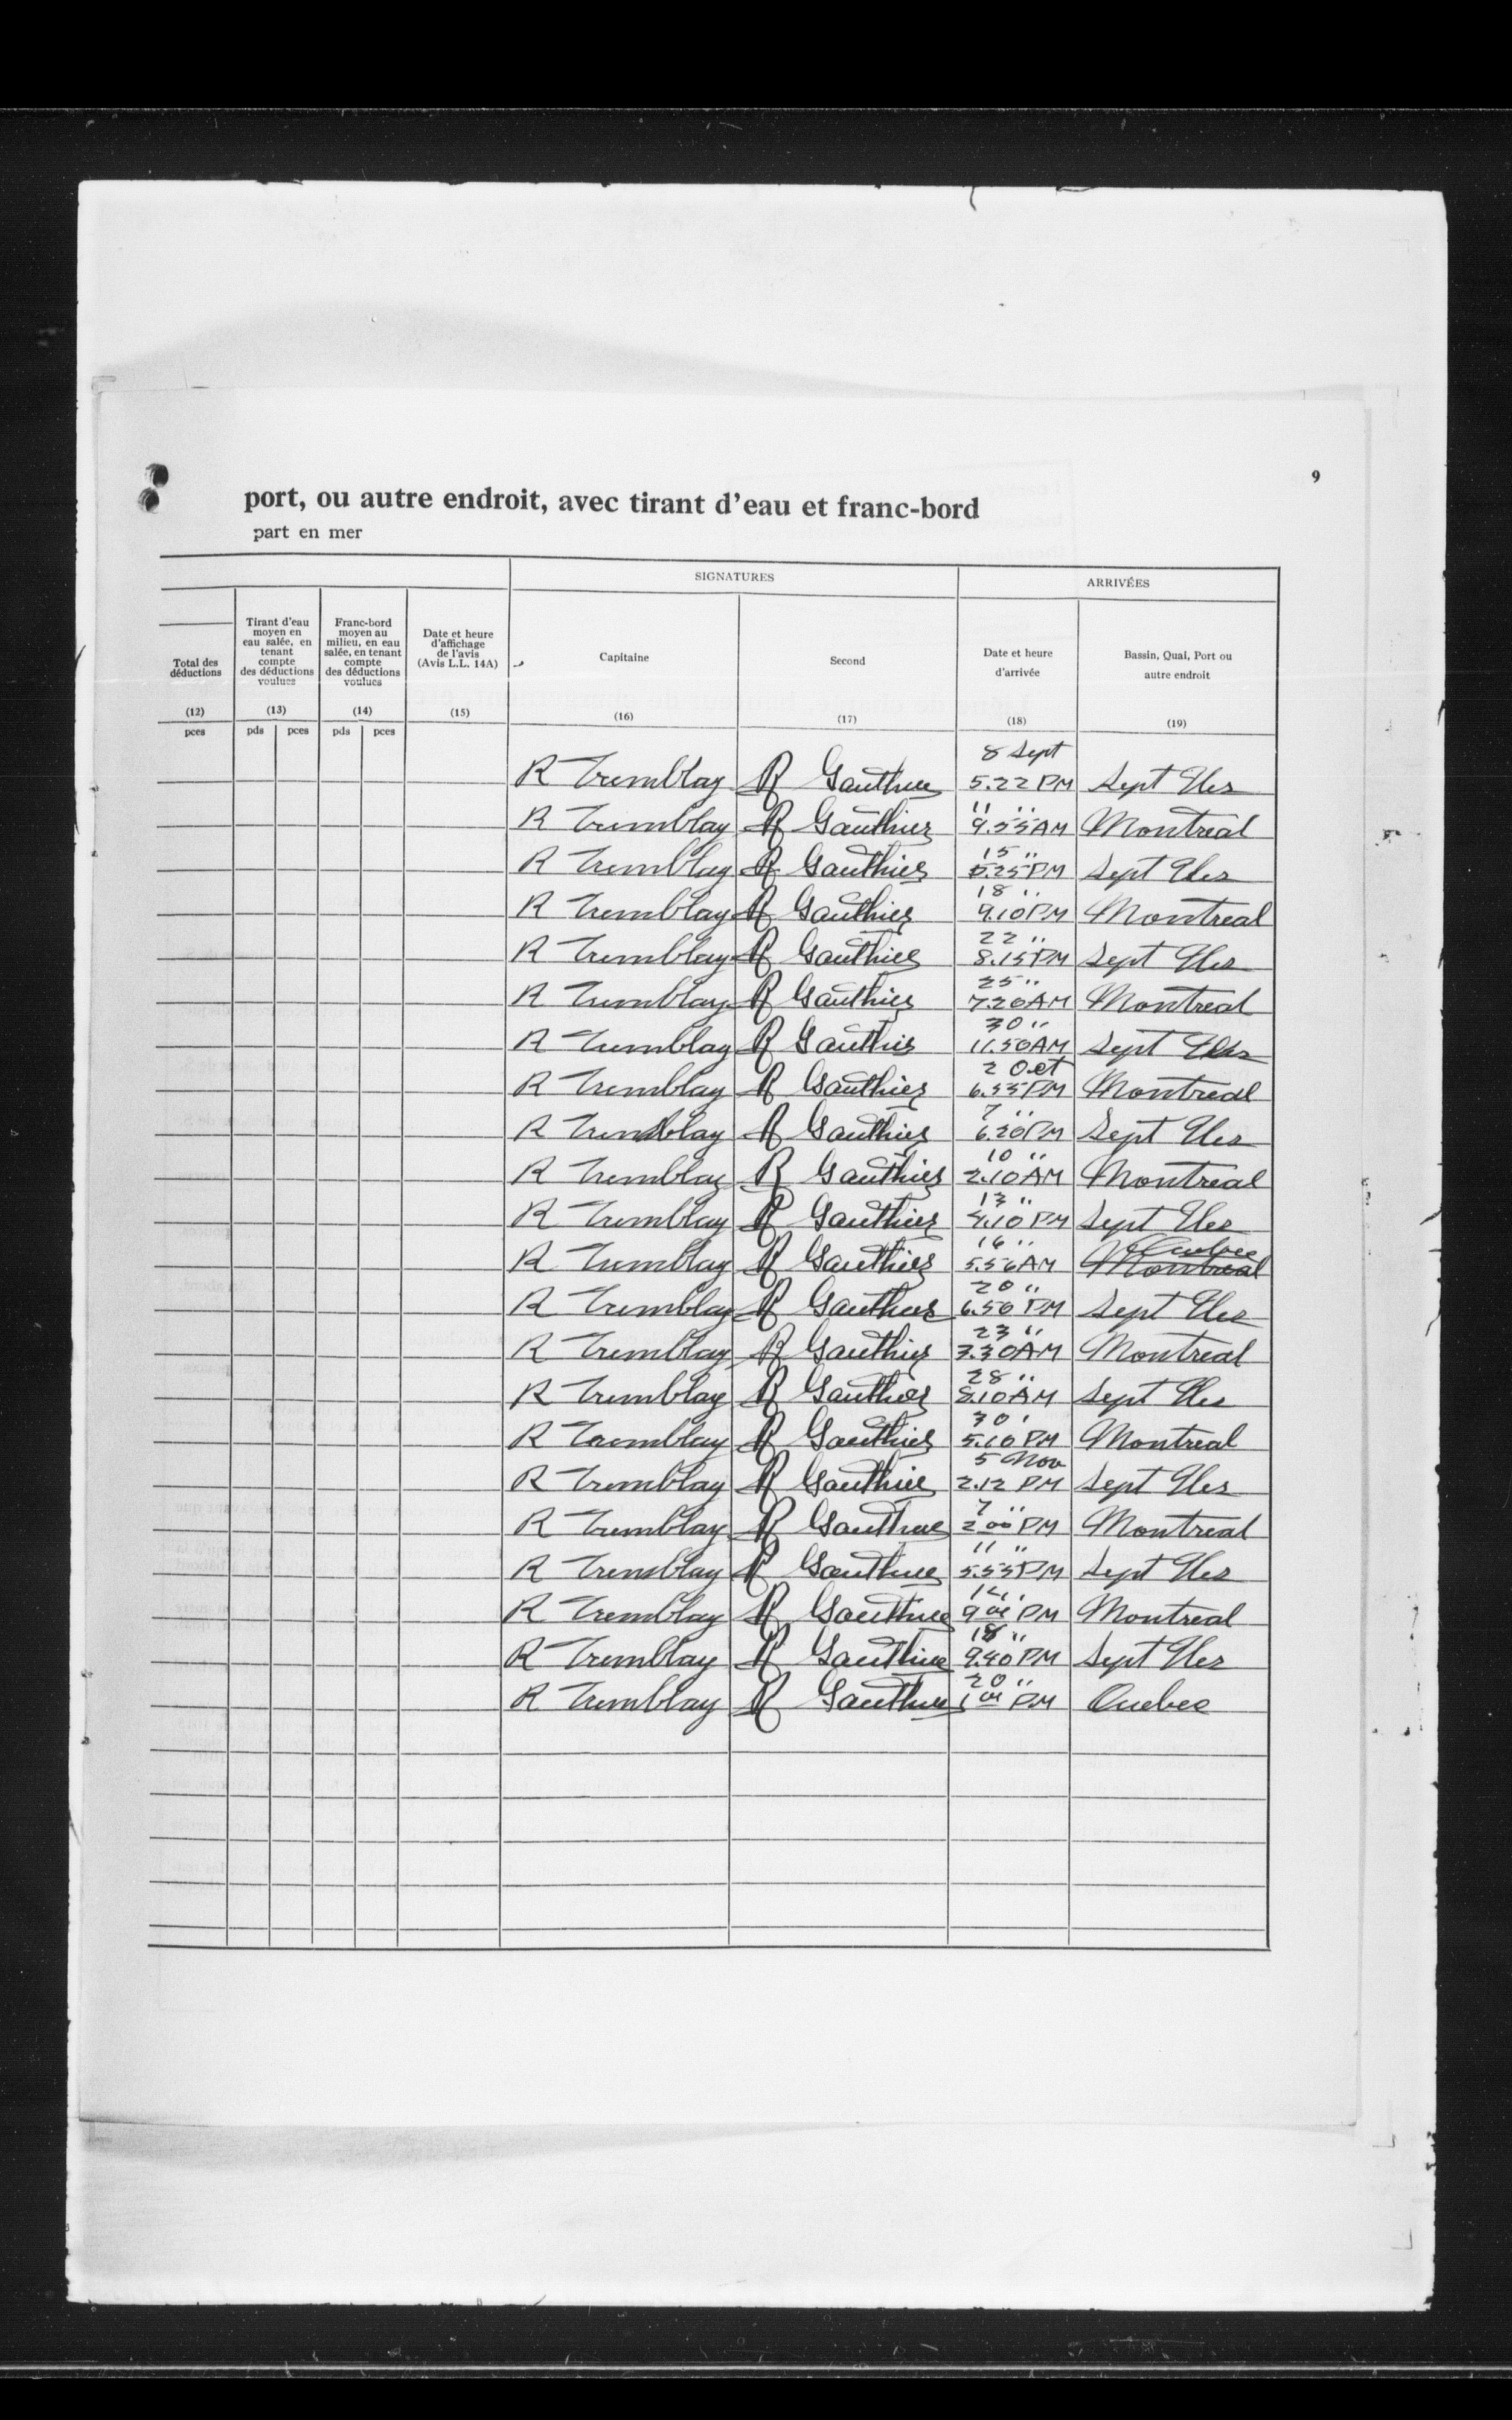 9
port, ou autre endroit, avec tirant d'eau et franc-bord
part en mer
SIGNATURES ARRIVÉES
Total des déductions
Tirant d'eau moyen en eau salée, en tenant compte des déductions voulues
Franc-bord moyen au milieu, en eau salée, en tenant compte des déductions voulues
Date et heure d'affichage de l'avis (Avis L.L. 14A)
Capitaine
Second
Date et heure d'arrivée
Bassin, Quai, Port ou autre endroit
(12) (13) (14) (15) (16) (17) (18) (19)
pces pds pces pds pces
8 Sept
R Tremblay R Gauthier 5.22 PM Sept Iles
11 "
R Tremblay R Gauthier 9.55 AM Montreal
15 "
R Tremblay R Gauthier 5.25 PM Sept Iles
18 "
R Tremblay R Gauthier 9.10 PM Montreal
22 "
R Tremblay R Gauthier 8.15 PM Sept Iles
25 "
R Tremblay R Gauthier 7.20 AM Montreal
30 "
R Tremblay R Gauthier 11.50 AM Sept Iles
2 Oct
R Tremblay R Gauthier 6.55 PM Montreal
7 "
R Tremblay R Gauthier 6.20 PM Sept Iles
10 "
R Tremblay R Gauthier 2.10 AM Montreal
13 "
R Tremblay R Gauthier 4.10 PM Sept Iles
16 " Quebec
R Tremblay R Gauthier 5.56 AM Montreal
20 "
R Tremblay R Gauthier 6.50 PM Sept Iles
23 "
R Tremblay R Gauthier 3.30 AM Montreal
28 "
R Tremblay R Gauthier 8.10 AM Sept Iles
30 '
R Tremblay R Gauthier 5.10 PM Montreal
5 Nov
R Tremblay R Gauthier 2.12 PM Sept Iles
7 "
R Tremblay R Gauthier 2 00 PM Montreal
11 "
R Tremblay R Gauthier 5.55 PM Sept Iles
R Tremblay R Gauthier 9 PM Montreal
18 "
R Tremblay R Gauthier 9.40 PM Sept Iles
20 "
R Tremblay R Gauthier 1 PM Quebec